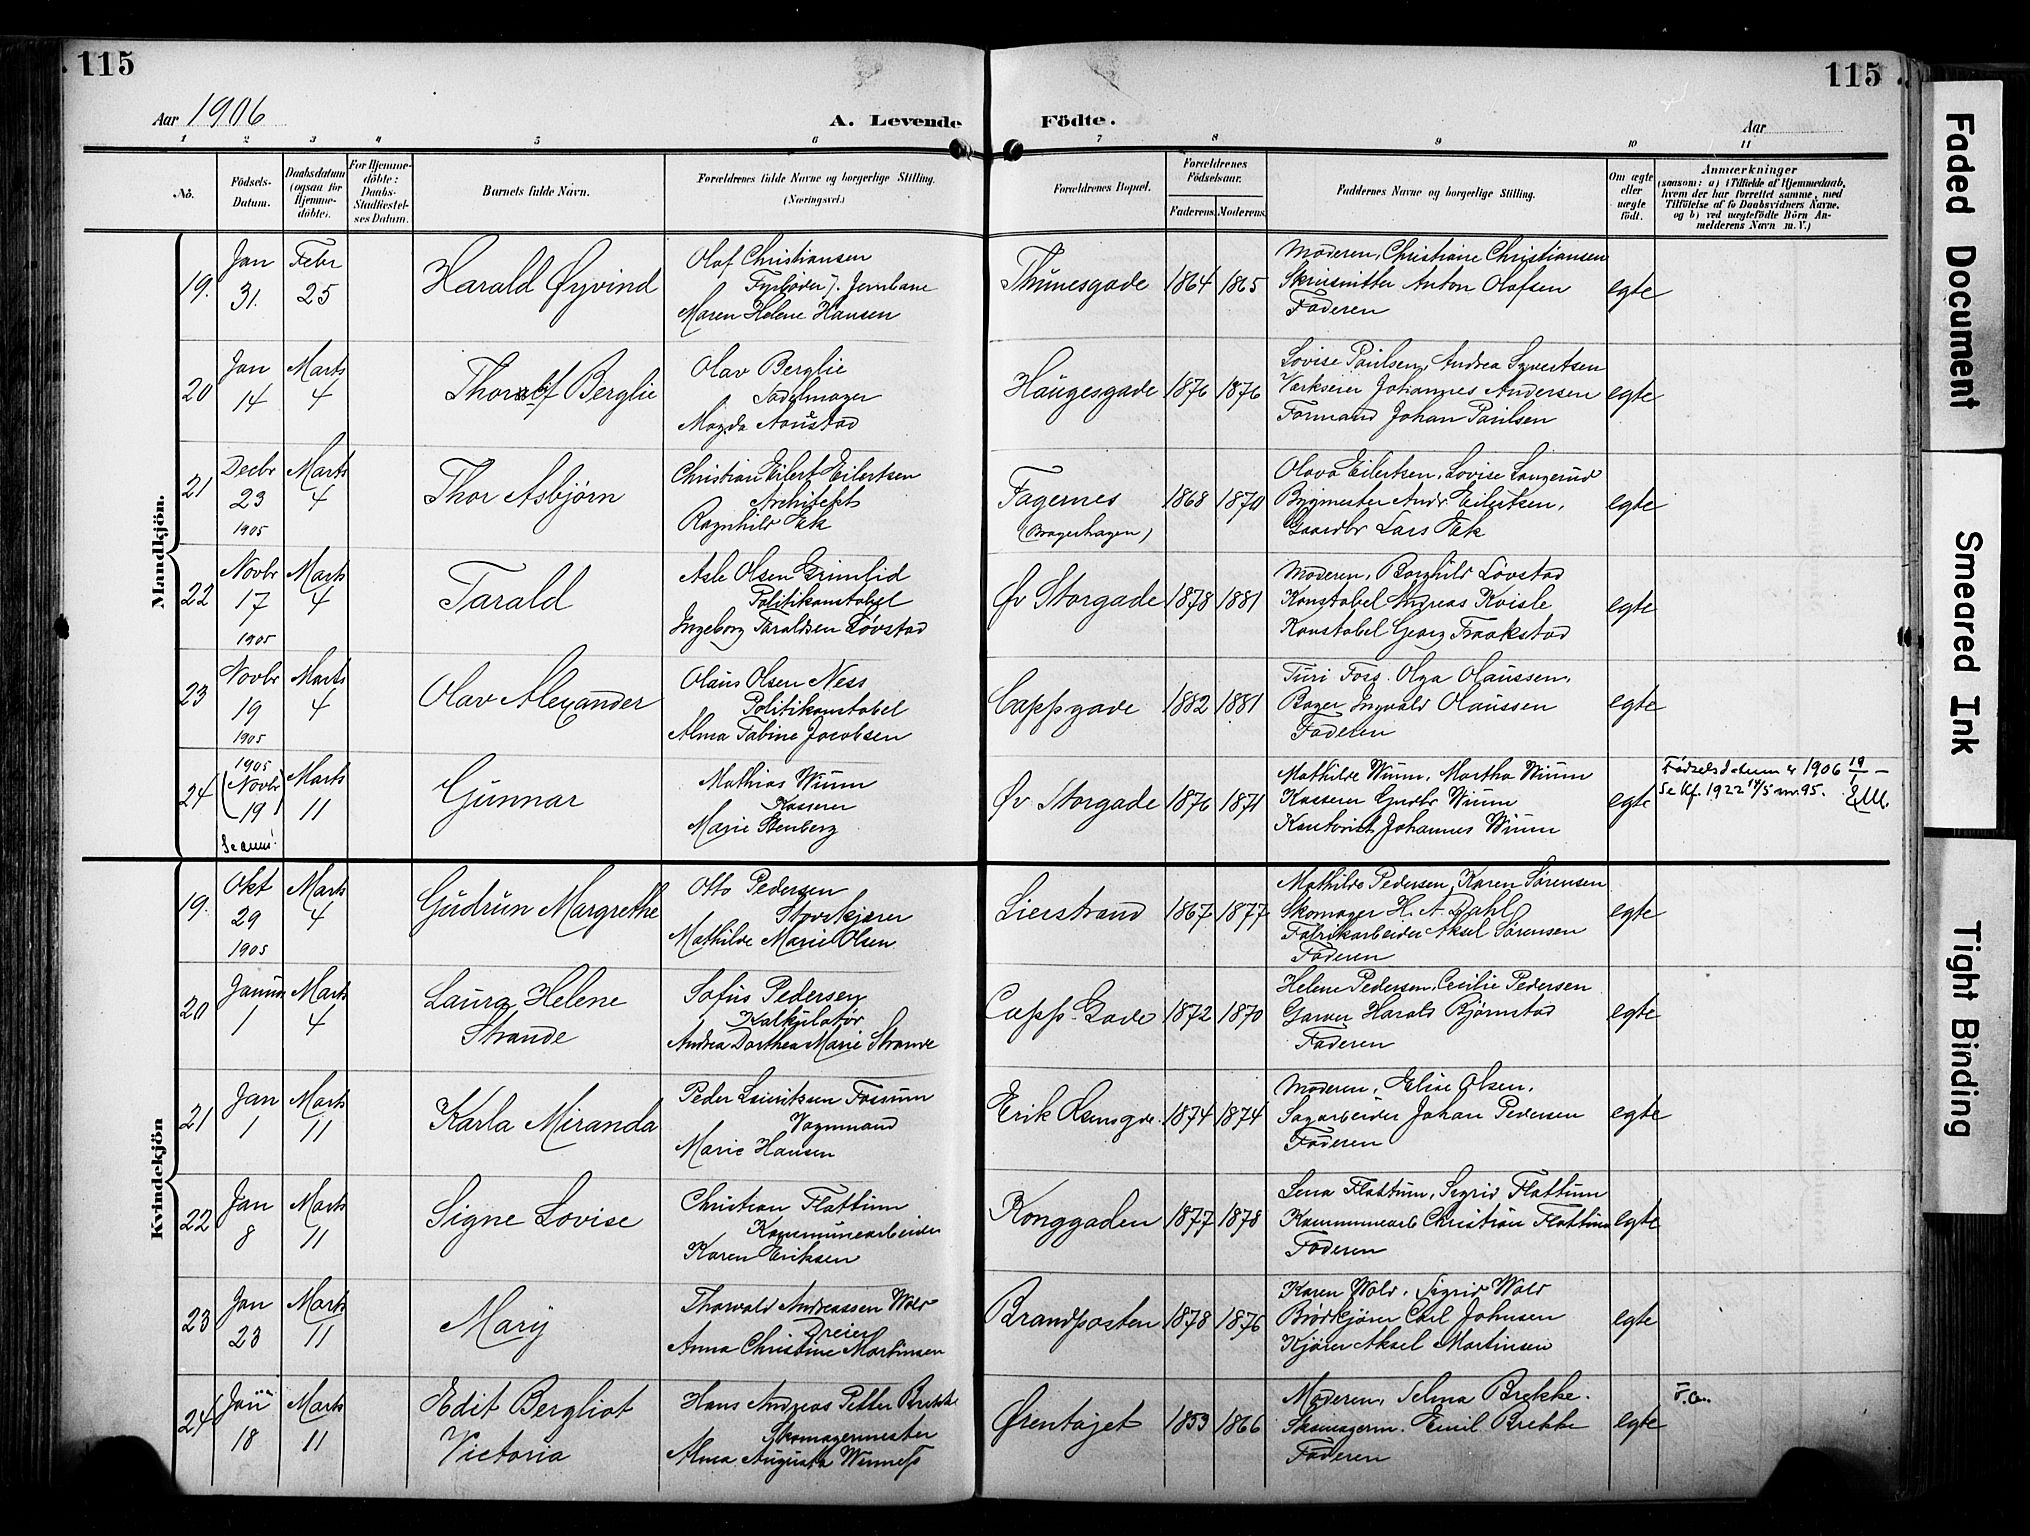 115
115
Aar 1906
A. Levende Födte.
Aar
1 2 3 4 5 6 7 8 9 10 11
No.
Födsels-Datum.
Daabsdatum (ogsaa for Hjemme-döbte).
For Hjemme-döbte: Daabs-Stadfæstel-ses Datum.
Barnets fulde Navn.
Forældrenes fulde Navne og borgerlige Stilling. (Næringsvei.)
Forældrenes Bopæl.
Forældrenes Födselsaar.
Faderens. Moderens.
Faddernes Navne og borgerlige Stilling.
Om ægte eller uægte födt.
Anmærkninger
(saasom: a) i Tilfælde af Hjemmedaab, hvem der har forrettet samme, med Tilföielse af to Daabsvidners Navne, og b) ved uægtefödte Börn An-melderens Navn m. V.)
Mandkjön.
19. Jan 31. Febr 25 Harald Øyvind
Olaf Christiansen
Fyrbøder v. Jernbane
Maren Helene Hansen
Thunesgade 1864 1865
Moderen, Christiane Christiansen
Anton Olafsen
Faderen
egte
20 Jan 14 Marts 4 Berglie
Olav Berglie
Sadelmager
Magda Aaustad
Haugesgade 1876 1876
Lovise Paulsen, Andrea Syvertsen
Værkseier Johannes Andersen
Formand Johan Paulsen
egte
21 Decbr 23 1905 Marts 4 Thor Asbjørn
Christian Eilert Eilertsen
Architekt
Ragnhild Fak
Fagernes
(Bragerhagen)
1868 1870
Olava Eilertsen, Lovise Langerud
Bygmester Andr Eilertsen,
Gaardbr Lars Fak
egte
22 Novbr 17 1905 Marts 4 Tarald
Asle Olsen Grimlid
Politikonstabel
Ingeborg Taraldsen Løvstad
Øv Storgade 1878 1881
Moderen, Borghild Løvstad
Konstabel Andreas Kvisle
Konstabel Georg Fraakstad
egte
23 Novbr 19 1905 Marts 4 Olav Alexander
Olaus Olsen Ness
Politikonstabel
Alma Tabine Jacobsen
Cappsgade 1882 1881
Turi Foss. Olga Olaussen,
Bager Ingvald Olaussen
Faderen
egte
24 1905 (Novbr 19) Se anm! Marts 11 Gunnar
Mathias Wium
Kasserer
Marie Stenberg
Øv Storgade 1876 1871
Mathilde Wium, Martha Wium
Kasserer Gudbr Wium
Kontorist Johannes Wium
egte
Fødselsdatum er 1906 19/1 –
Se Kf. 1922 14/5 nr. 95. EM.
Kvindekjön
19. Okt 29 1905 Marts 4 Gudrun Margrethe
Otto Pedersen
Stovskjærer
Mathilde Marie Olsen
Lierstrand 1867 1877
Mathilde Pedersen, Karen Sørensen
Skomager H. A. Dahl
Fabrikarbeider Aksel Sørensen
Faderen
egte
20 Januar 1 Marts 4 Laura Helene
Strande
Sofus Pedersen
Kalkulatør
Andrea Dorthea Marie Strande
Capps. Gade 1872 1870
Helene Pedersen, Cecilie Pedersen
Garver Harald Bjørnstad
Faderen
egte
21 Jan 1 Marts 11 Karla Miranda
Peder Lauritsen Fossum
Vognmand
Marie Hansen
Erik Olsensgd. 1874 1874
Moderen, Elise Olsen,
Sagarbeider Johan Pedersen
Faderen
egte
22 Jan 8 Marts 11 Signe Lovise
Christian Flattum
Kommunearbeider
Karen Eriksen
Konggaden 1877 1878
Lena Flattum, Sigrid Flattum
Kommunearb Christian Flattum
Faderen
egte
23 Jan 23 Marts 11 Mary
Thorvald Andreassen Wold
Dreier
Anna Christine Martinsen
Brandposten 1878 1876
Karen Wold, Sigrid Wold
Brødkjører Carl Johnsen
Kjører Aksel Martinsen
egte
24 Jan 18 Marts 11 Edit Bergliot
Victoria
Hans Andreas Petter Brekke
Skomagermester
Alma Augusta
Ørentøjet 1853 1866
Moderen, Selma Brekke.
Skomagerm. Emil Brekke
Faderen
egte
F.a.
Faded Document
Smeared Ink
Tight Binding